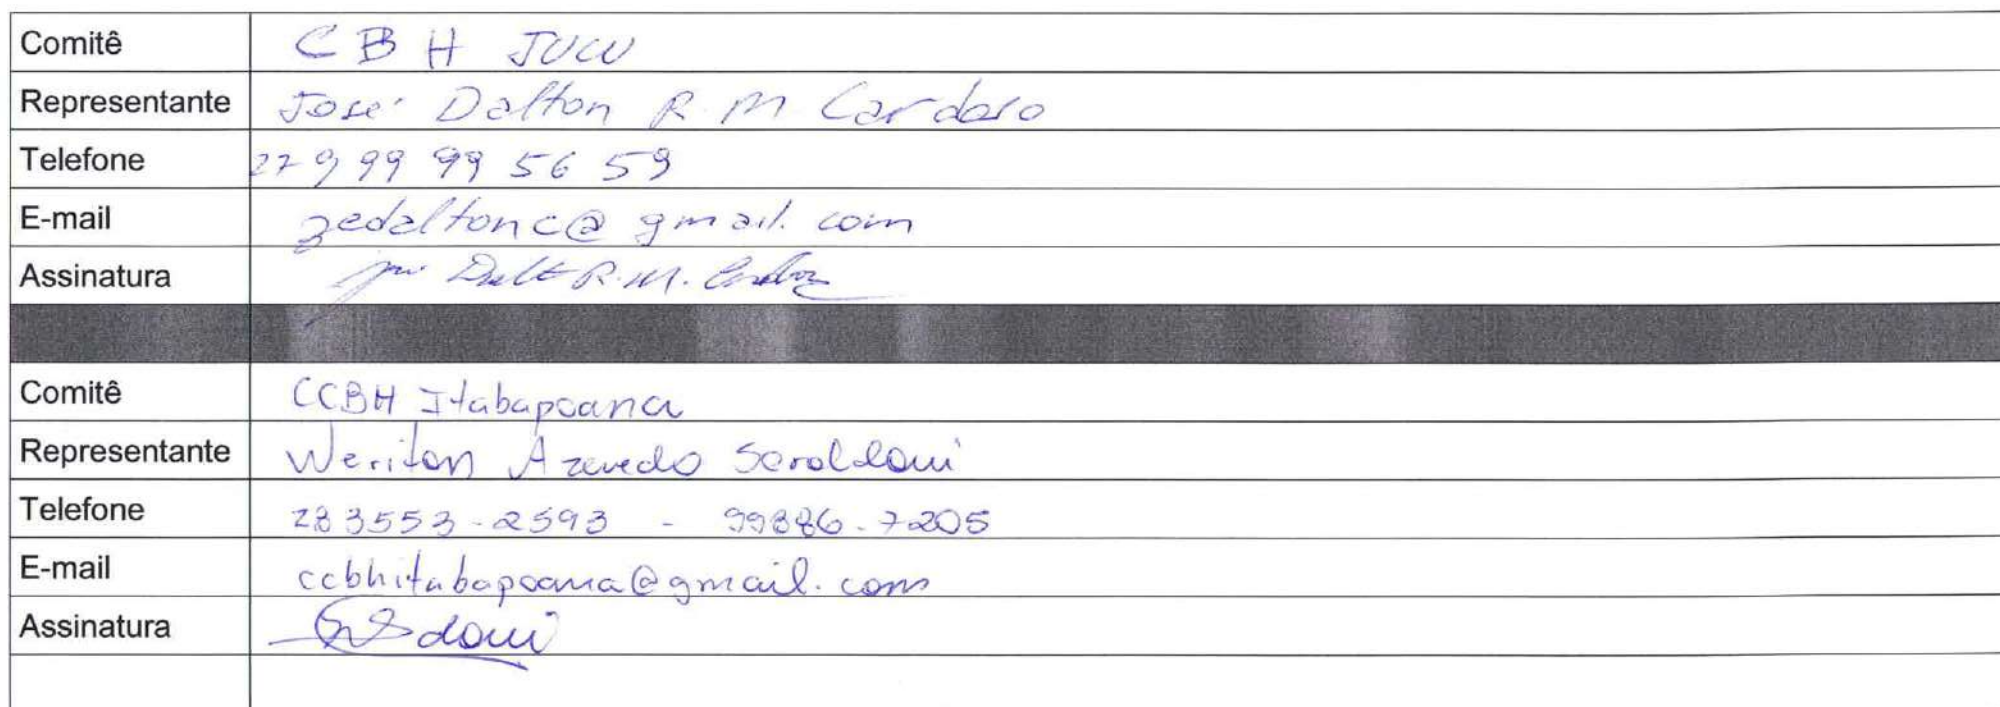 Comitê CBH JUCU
Representante José Dalton R. M Cardoso
Telefone 27 9 99 99 56 59
E-mail zedaltonc@gmail.com
Assinatura José Dalt R. M. Cardoso
Comitê CCBH Itabapoana
Representante Weriton Azevedo Soroldoni
Telefone 283553-2593 - 99886-7205
E-mail ccbhitabapoana@gmail.com
Assinatura